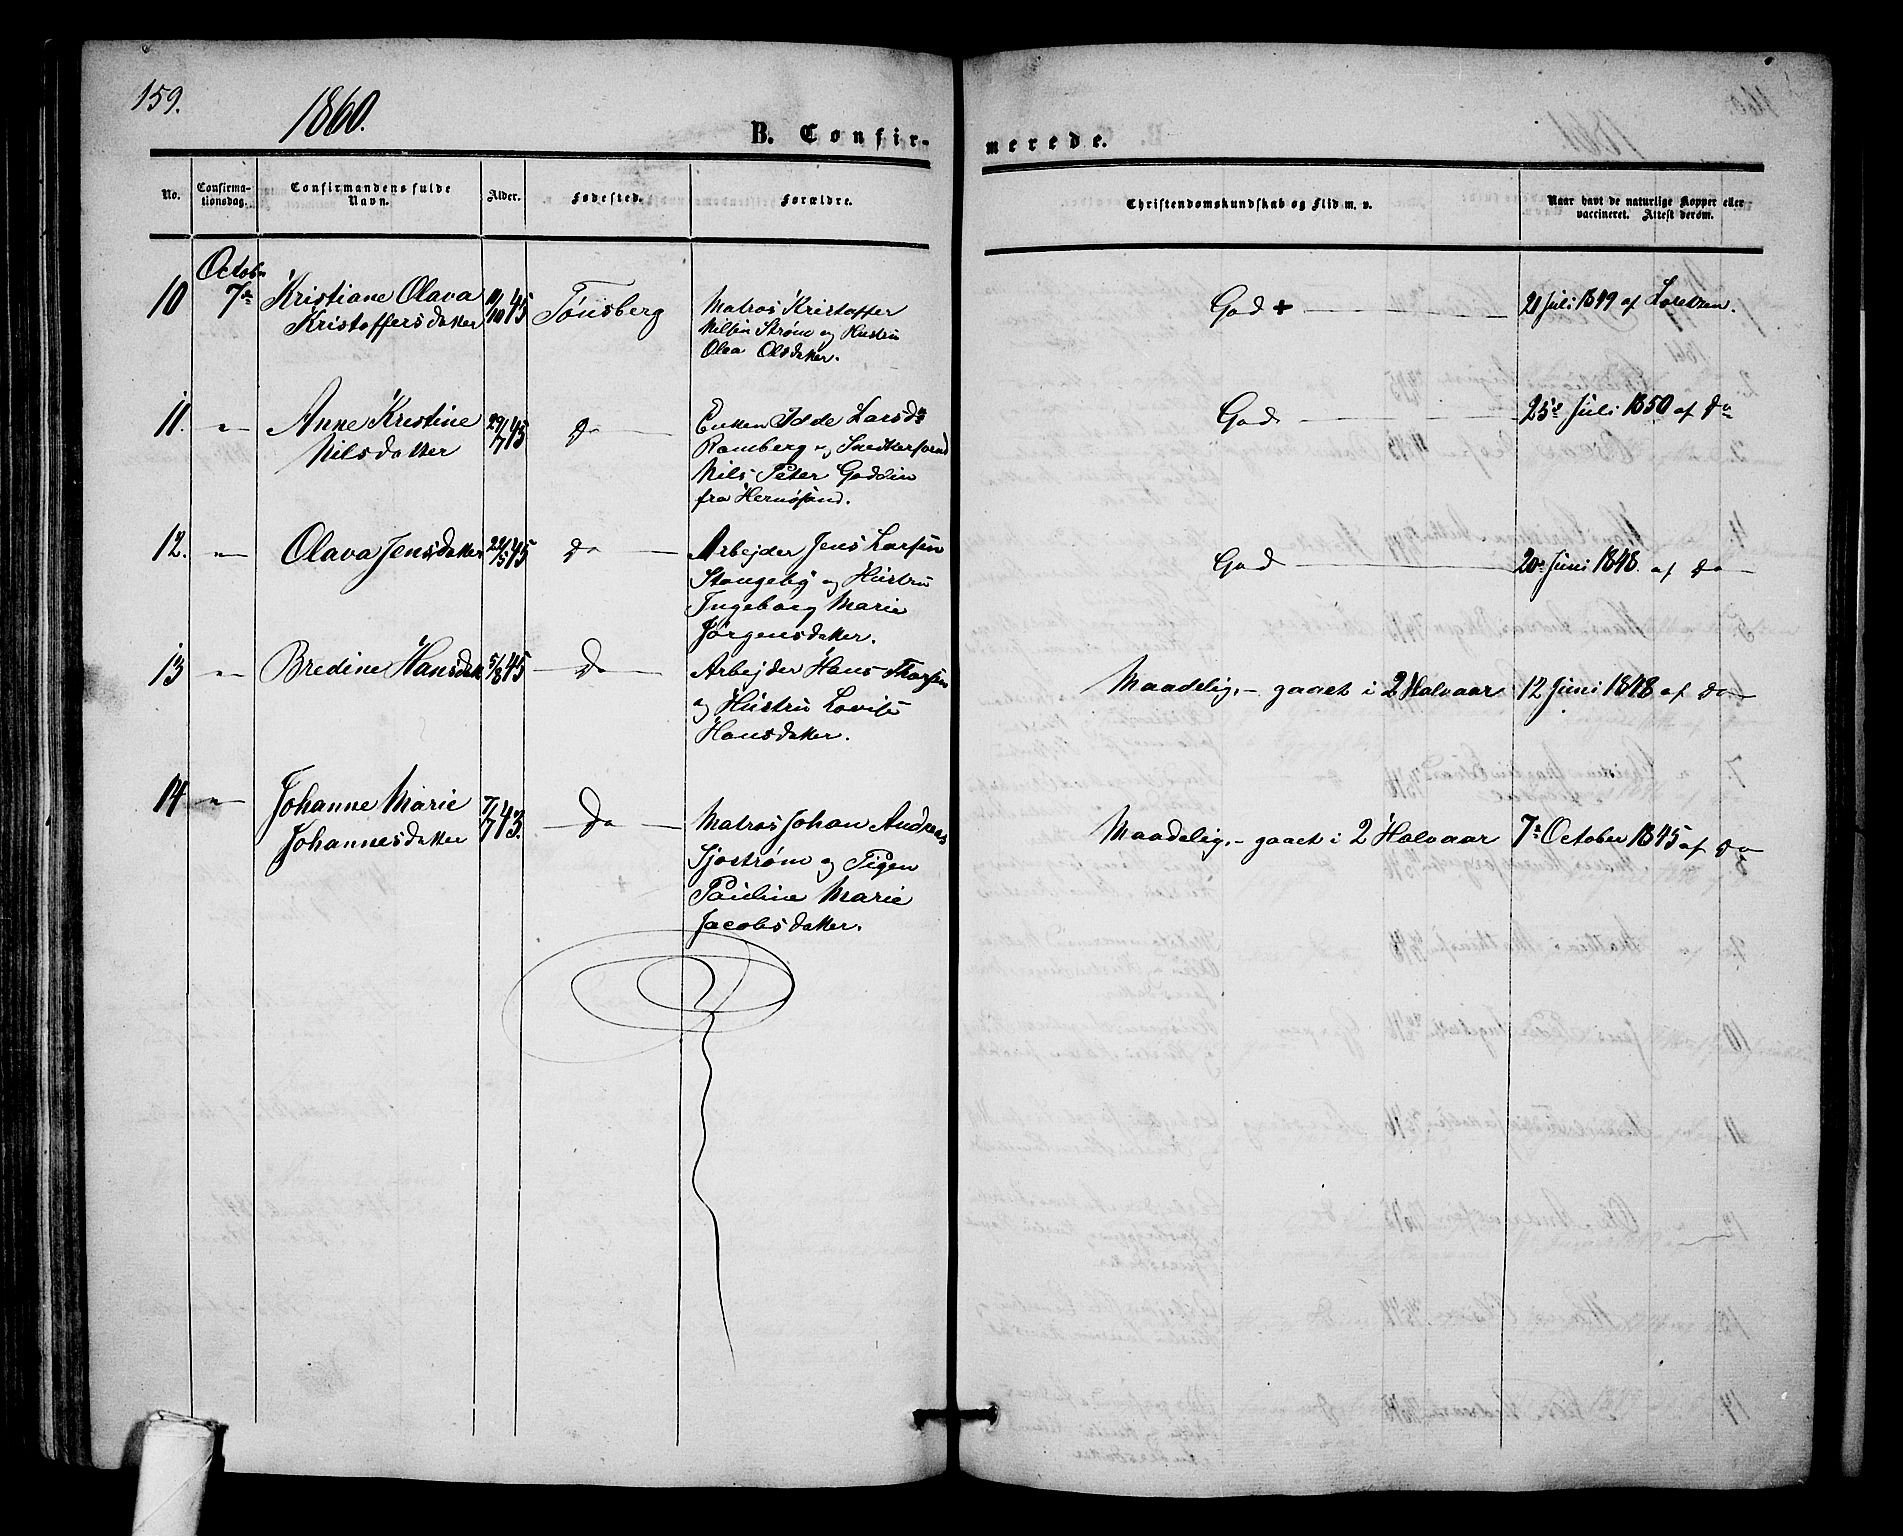 159.
1860.
B. Confir-
merede.
No.
Confirma-
tionsdag.
Confirmandens fulde
Navn.
Alder.
Fødested.
Forældre.
Christendomskundskab og Flid m. v.
Naar havt de naturlige Kopper eller
vaccineret. Attest derom.
Octobr
10 7de Kristiane Olava 11/10 45 Tønsberg Matros Kristoffer God + 21 Juli 1849 af Loretzen.
Kristoffersdatter Nilsen Strøm og Hustru
Olea Olsdatter.
11. " Anne Kristine 29/7 45 Do Enken Idde Larsdr God 25de Juli 1850 af Do
Nilsdatter Ramberg og Snedkersvend
Nils Peter Goddin
fra Hernøsand.
12. " Olava Jensdatter 45 Do Arbejder Jens Larsen God 20de Juni 1848. af Do
Stangeby og Hustru
Ingeborg Marie
Jörgensdatter.
13 " Bredine Hansdatt 5/8 45 Do Arbejder Hans Thorsen Maadelig, - gaaet i 2 Halvaar 12 Juni 1848 af Do
og Hustru Lovise
Hansdatter.
14 " Johanne Marie 7/7 43. Do Matros Johan Andreas Maadelig, - gaaet i 2 Halvaar 7de October 1845 af Do
Johannesdatter Sjøstrøm og Pigen
Pauline Marie
Jacobsdatter.